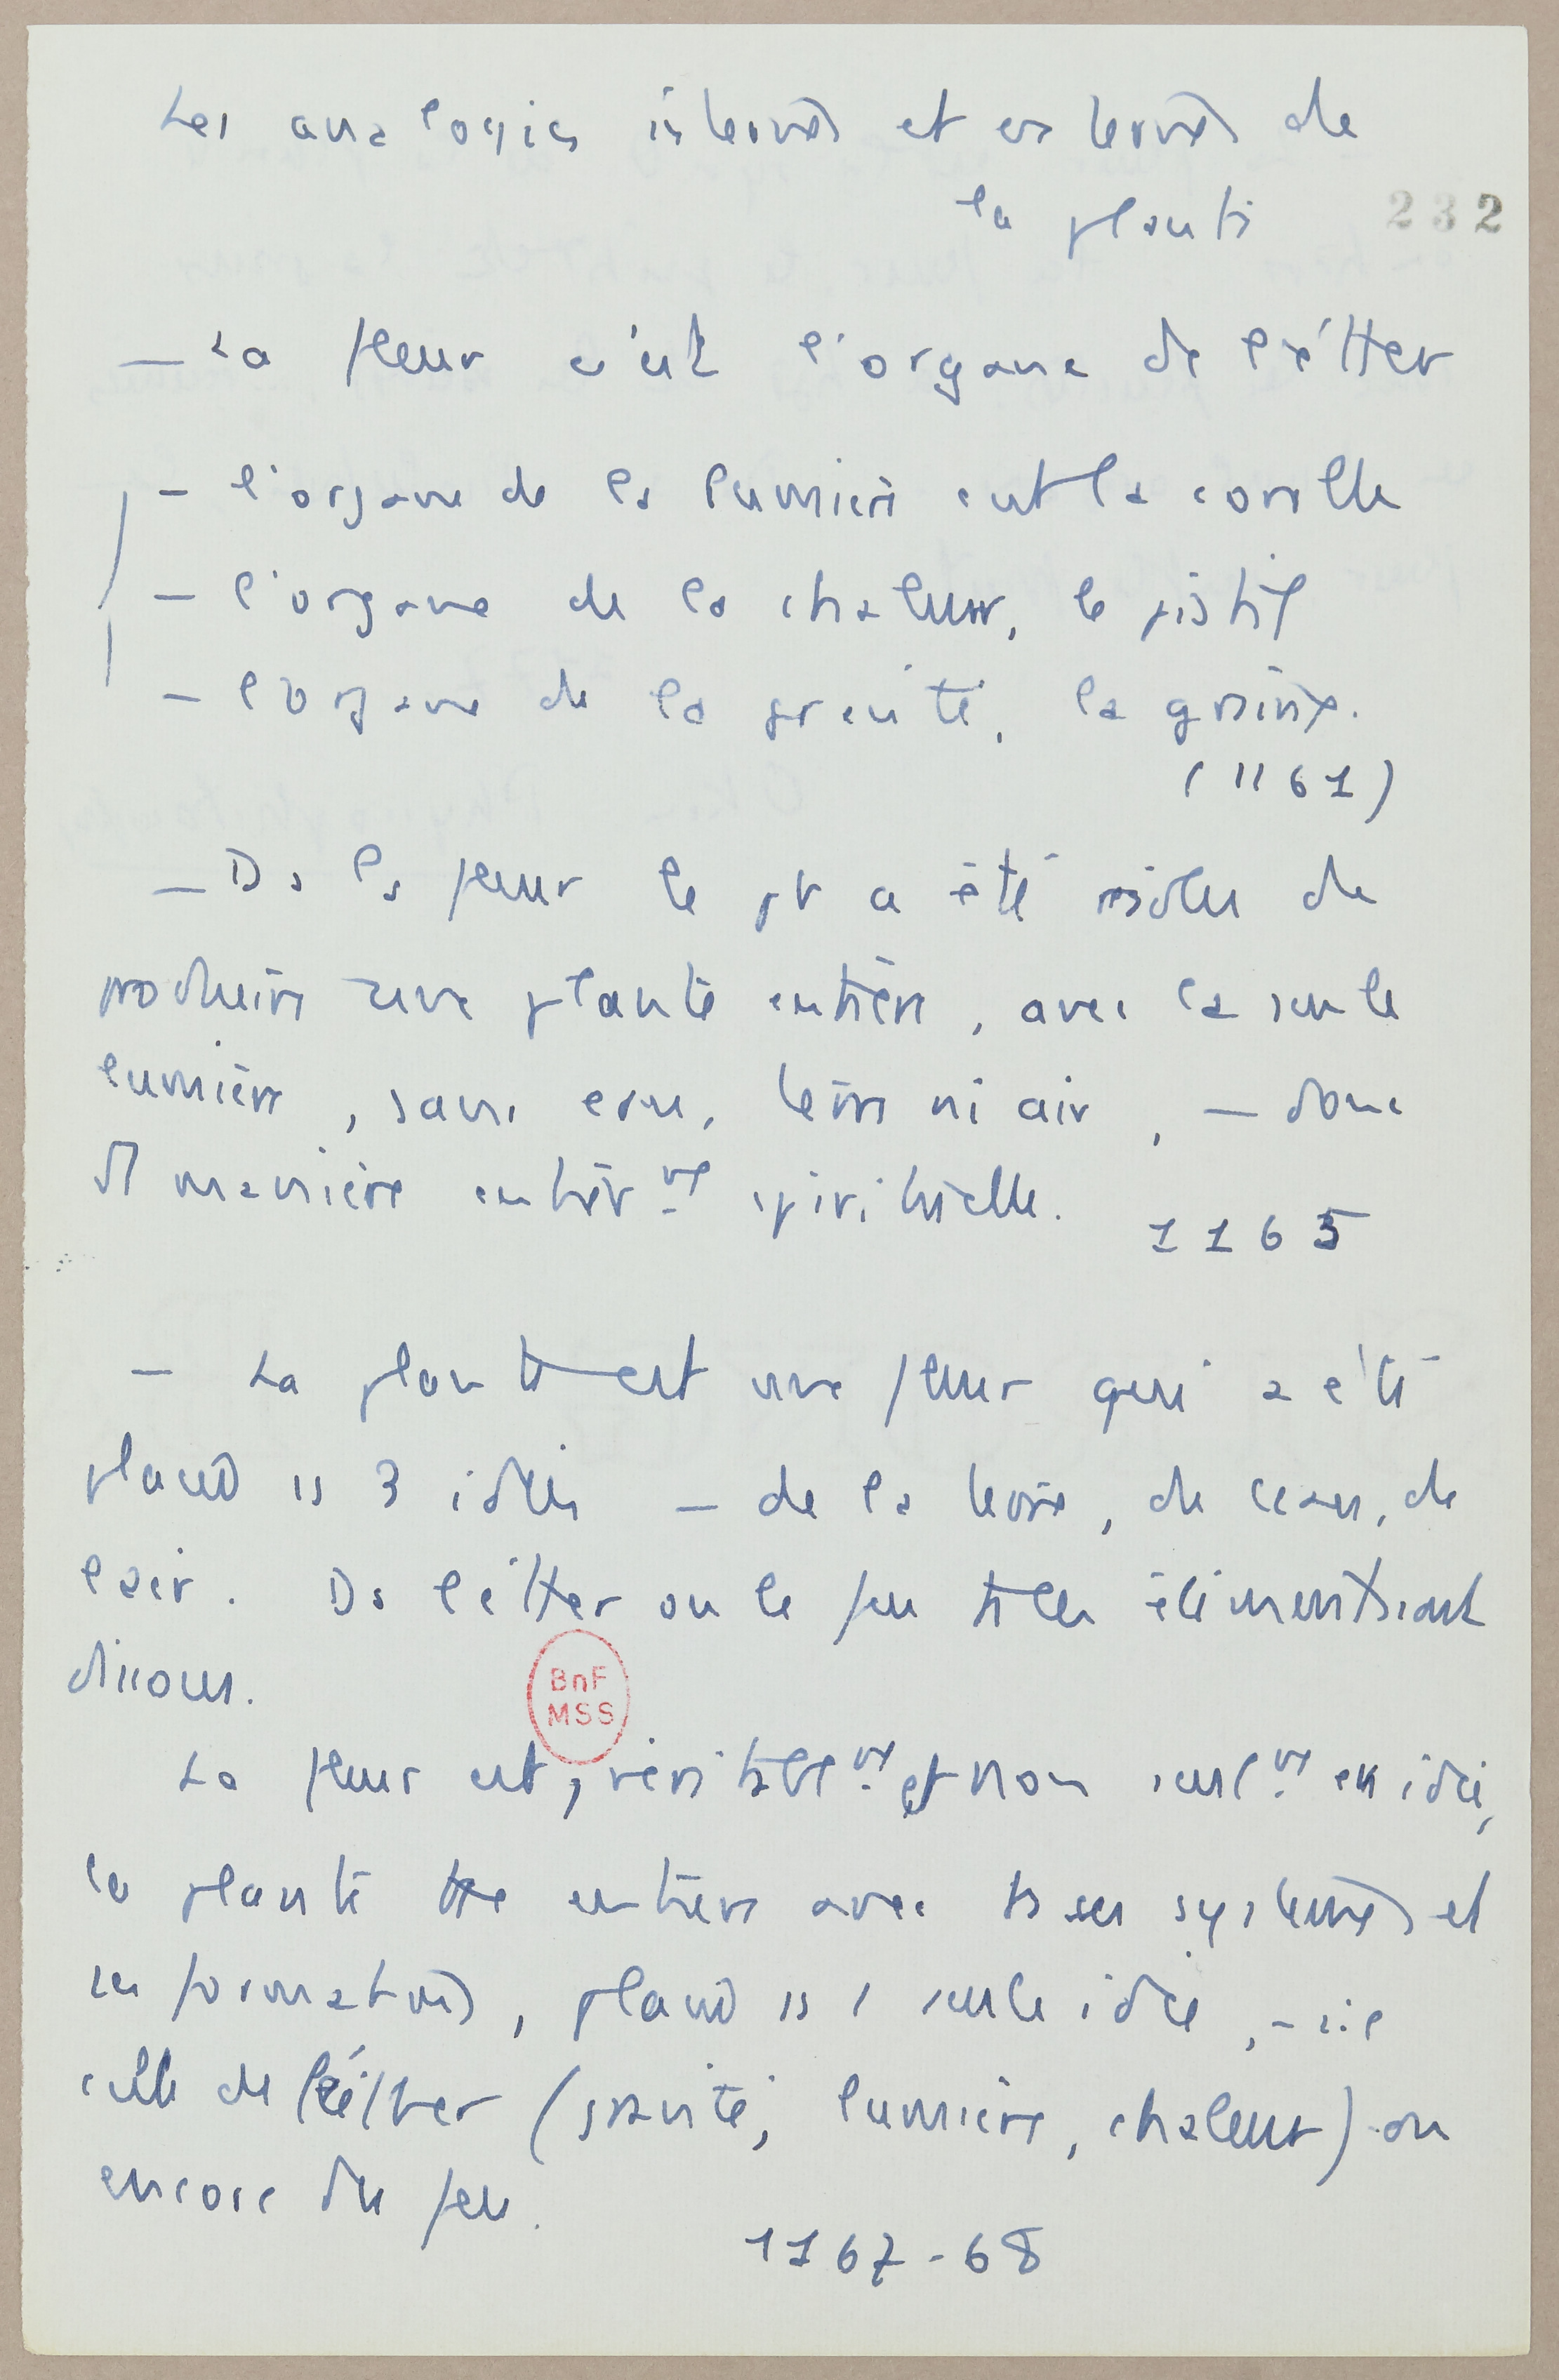 Les analogies internes et externes de
la plante
232
— La fleur c'est l'organe de l'éther
— l'organe de la lumière c'est la corolle
— l'organe de la chaleur, le pistil
— l'organe de la gravité, la graine.
(1161)
— Ds la fleur le pt a été de
produire une plante entière, avec la seule
lumière, sans eau, terre ni air, — donc
d manière entièrmt spirituelle.
1165
— La plante est une fleur qui a été
placée ss 3 idées — de la terre, de l'eau, de
l'air. Ds l'éther ou le feu ts les éléments sont
dissous.
BnF
MSS
La fleur est, véritablemt et non seulmt en idée,
la plante tte entière avec ts ses systèmes et
ses formations, placée ss 1 seule idée, —
celle de l'éther (gravité, lumière, chaleur) ou
encore du feu.
1167-68